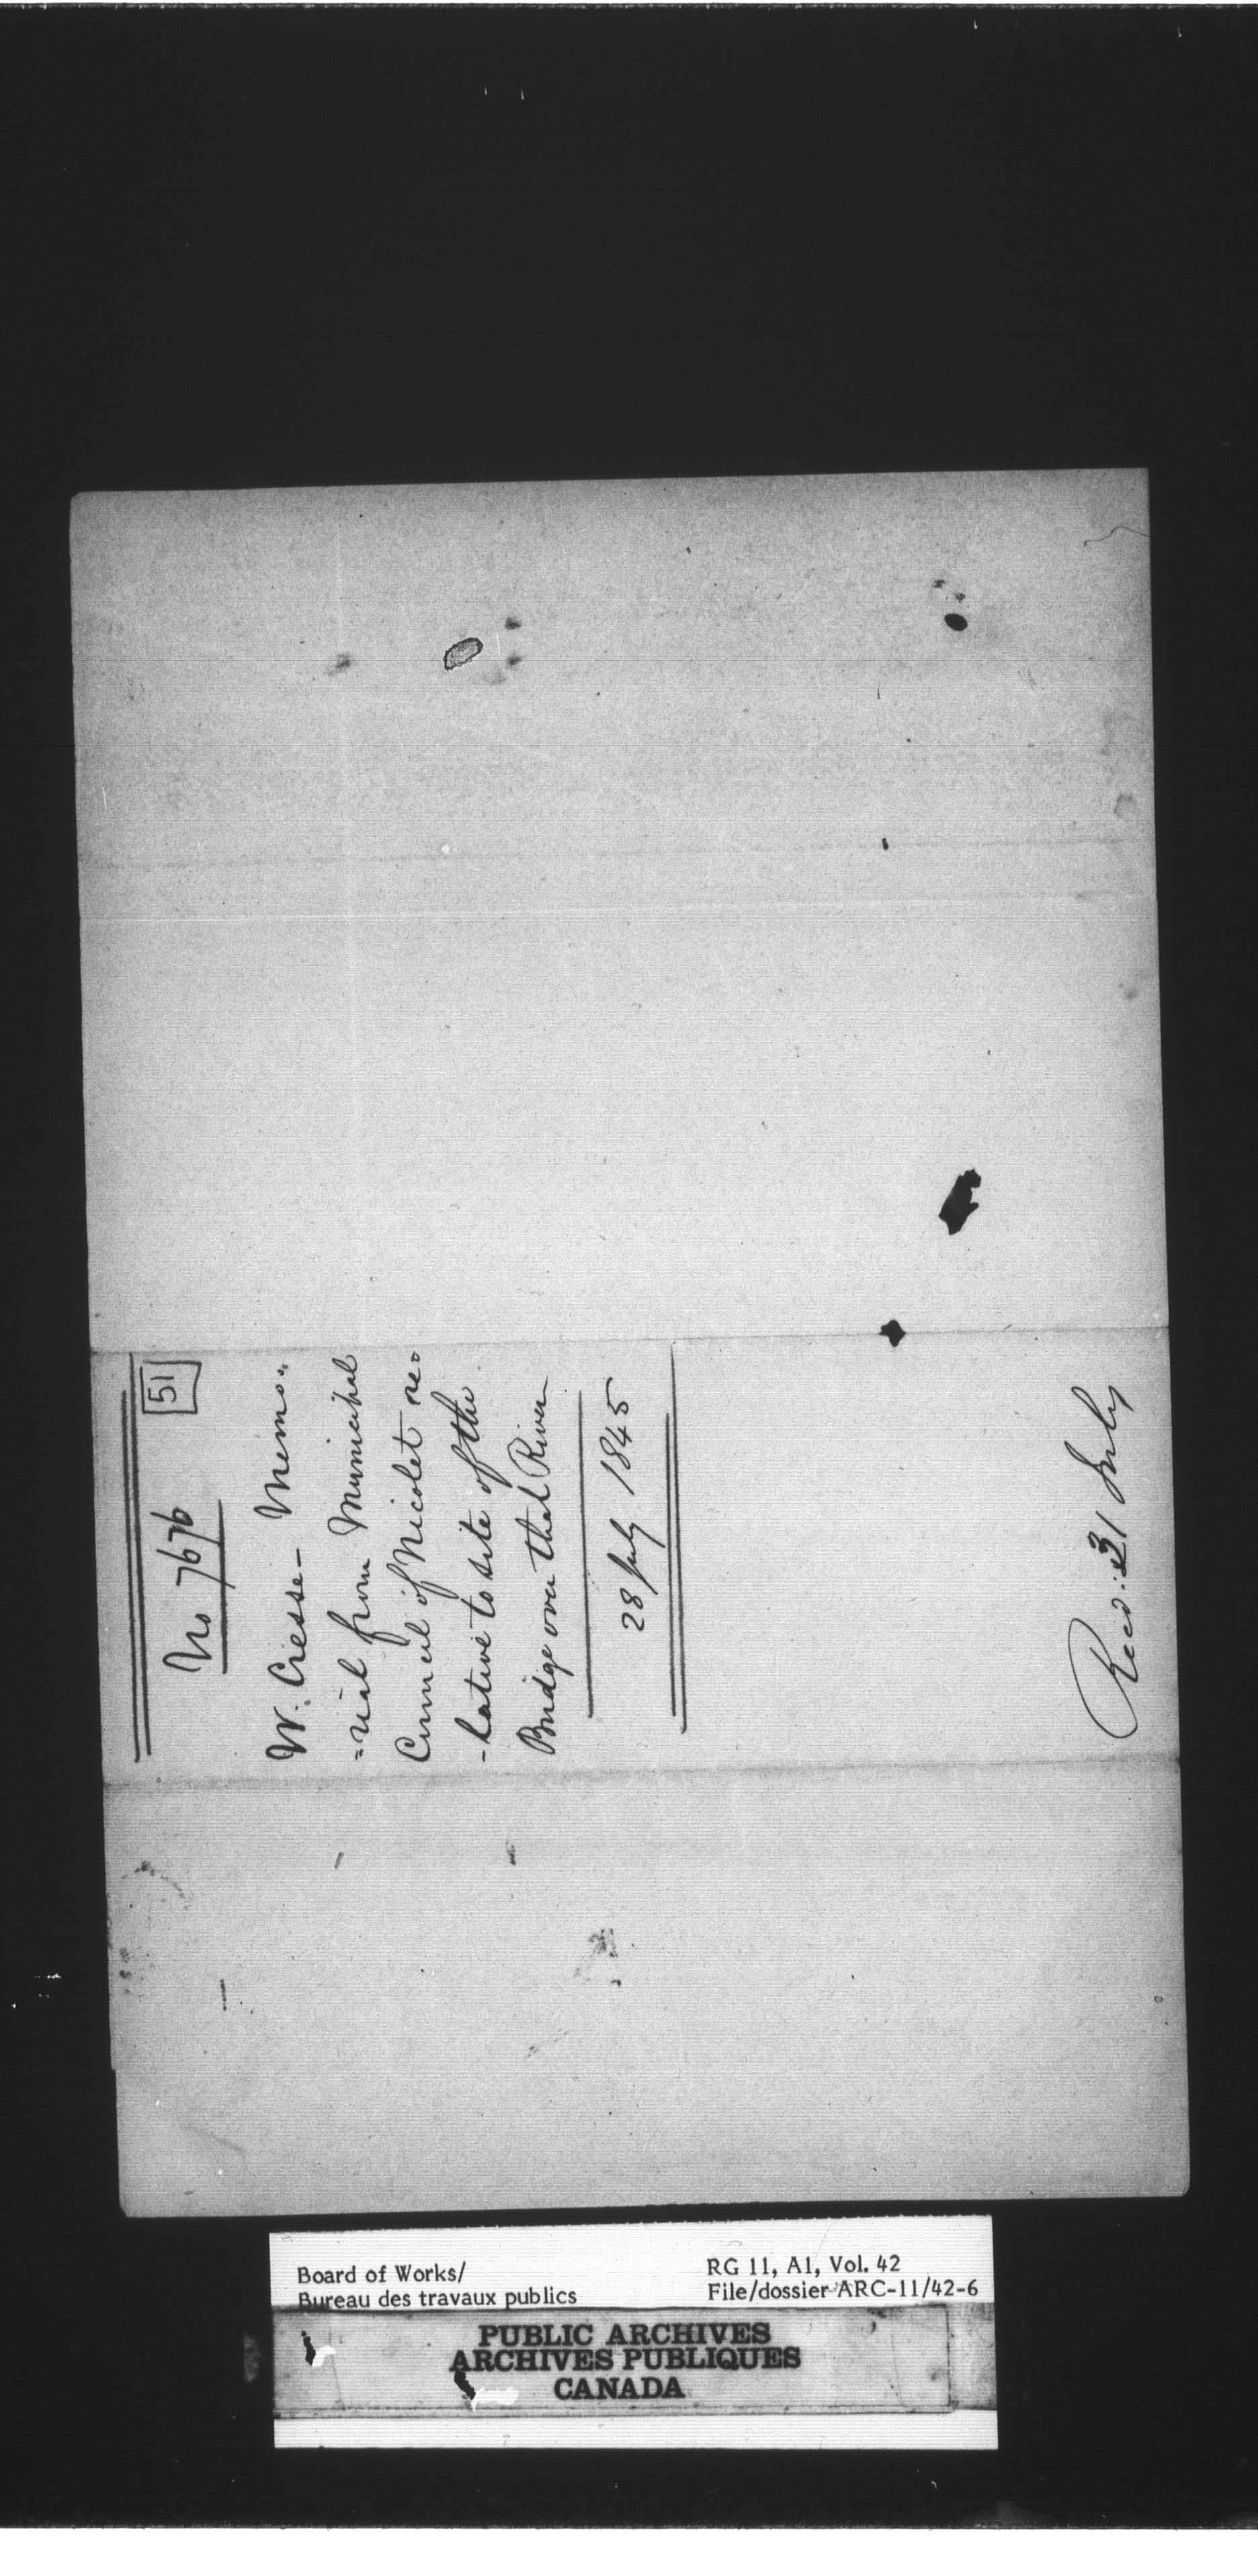 51
No 7676
W. Cresse - Memo=
=rial from Municipal
Council of Nicolet re=
-lative to site of the
Bridge over that River
28 July 1845
Recd. 31 July
Board of Works/
Bureau des travaux publics
RG 11, A1, Vol. 42
File/dossier ARC-11/42-6
PUBLIC ARCHIVES
ARCHIVES PUBLIQUES
CANADA